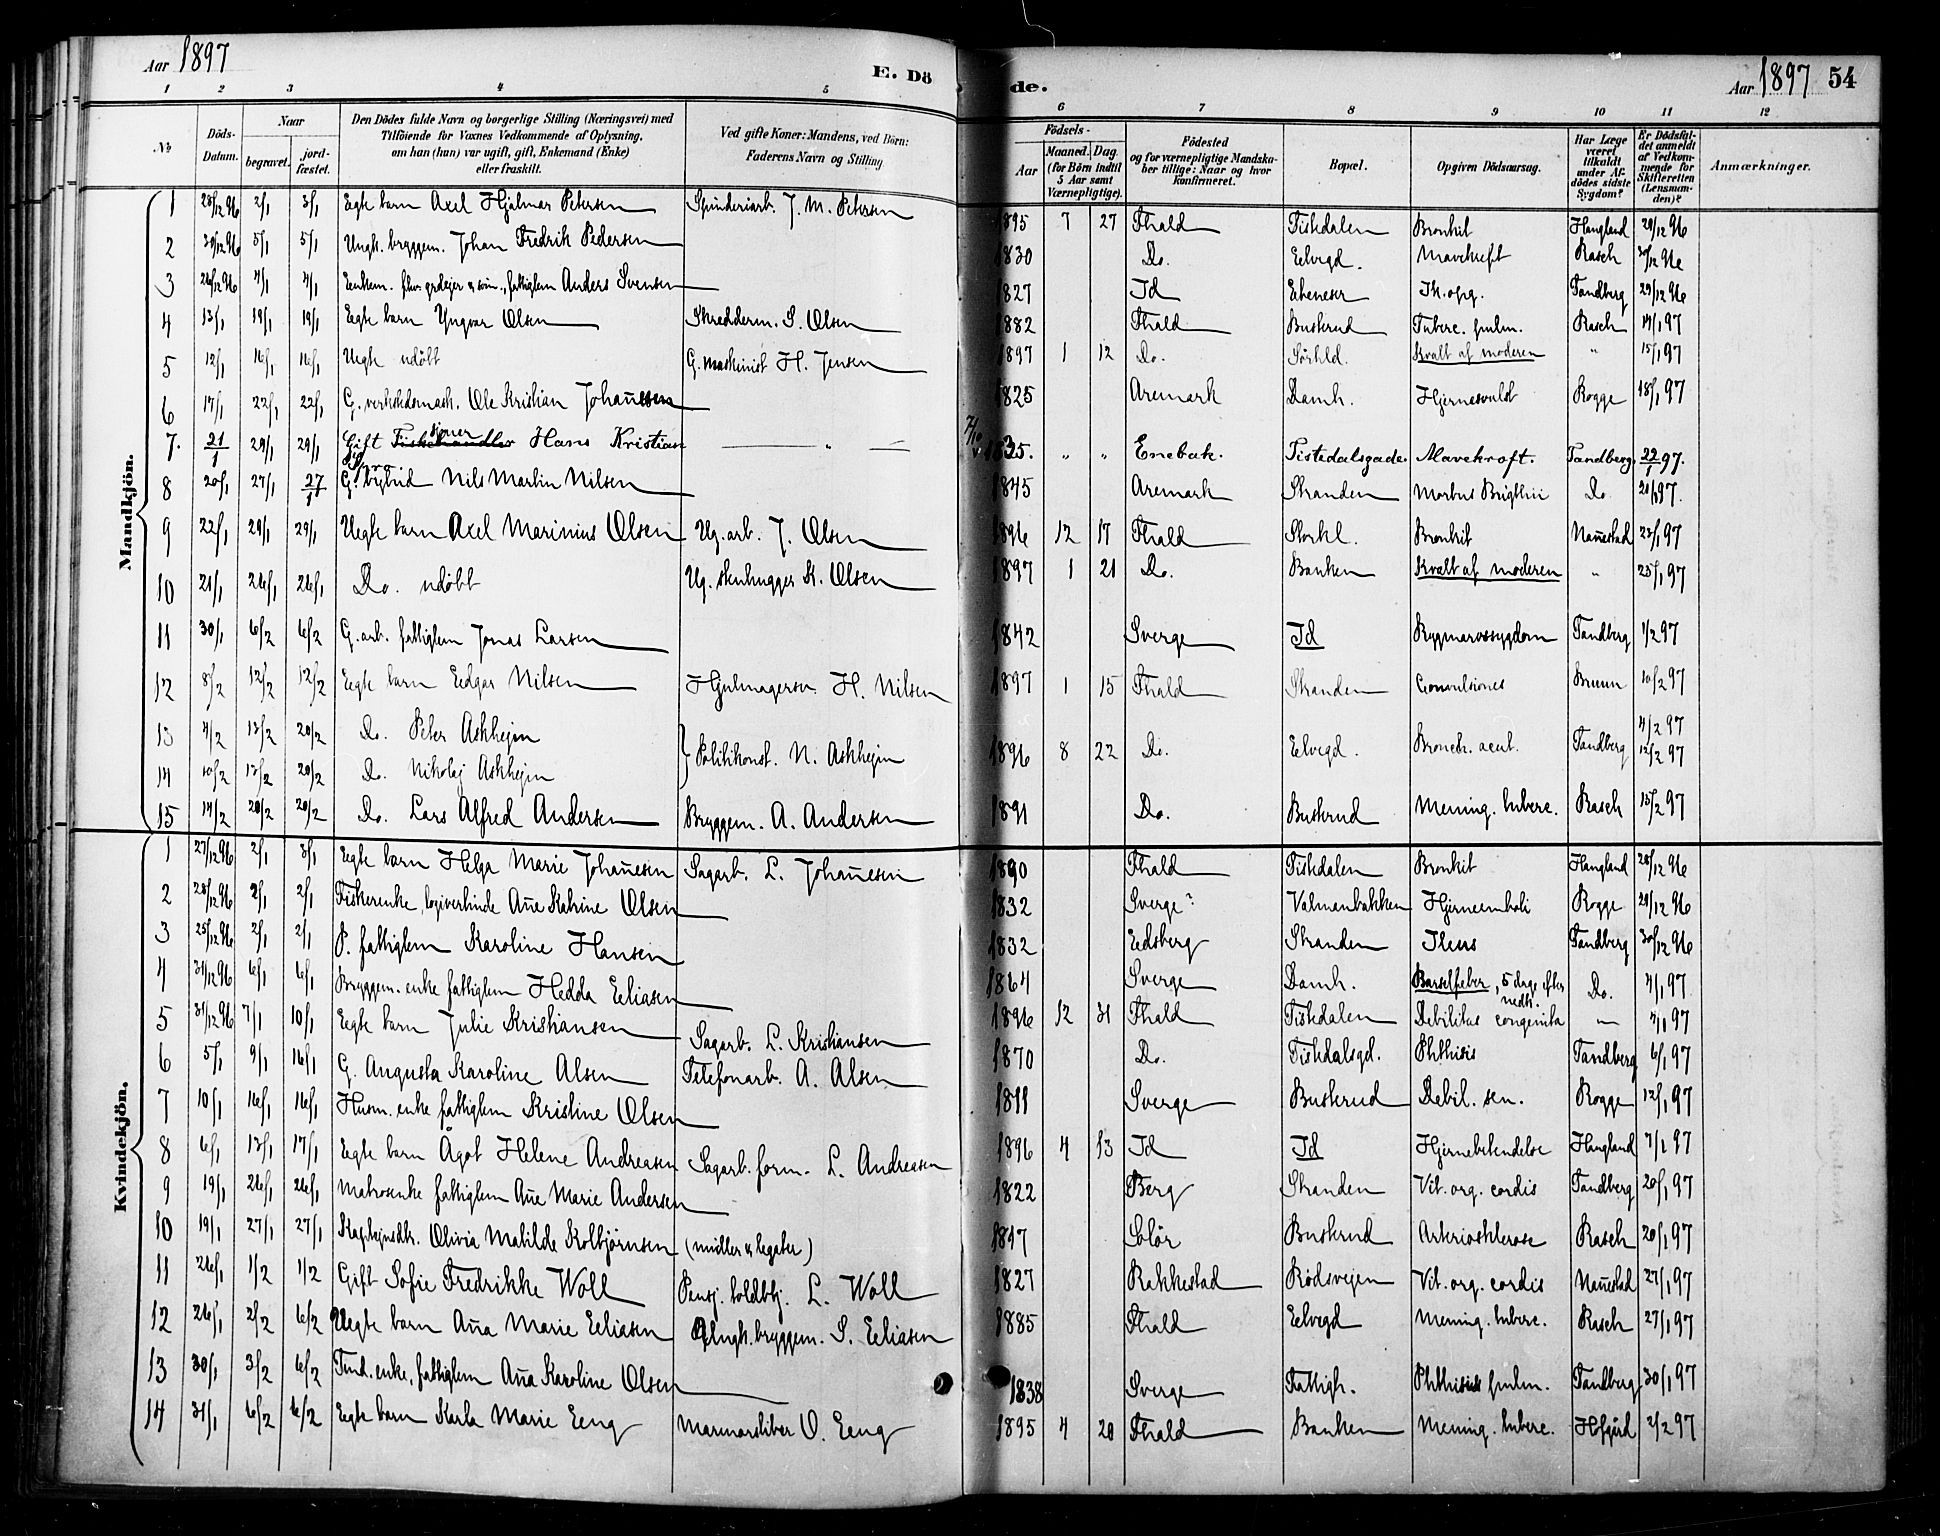 Aar 1897
E. Dö
de.
Aar 1897 54
1 2 3 4 5 6 7 8 9 10 11 12
№ Döds-Datum. Naar begravet. jordfæstet. Den Dödes fulde Navn og borgerlige Stilling (Næringsvei) med Tilföiende for Voxnes Vedkommende af Oplysning, om han (hun) var ugift, gift, Enkemand (Enke) eller fraskilt. Ved gifte Koner: Mandens, ved Börn: Faderens Navn og Stilling. Födsels- Aar Maaned. Dag. (for Börn indtil 5 Aar samt Værnepligtige). Födested og for værnepligtige Mandskaber tillige: Naar og hvor konfirmeret. Bopæl. Opgiven Dödsaarsag. Har Læge været tilkaldt under Afdödes sidste Sygdom? Er Dödsfaldet anmeldt af Vedkommende for Skifteretten (Lensmanden)? Anmærkninger.
Mandkjön.
1 28/12 96 2/1 3/1 Ægte barn Axel Hjalmar Petersen Spinderiarb. J. M. Petersen 1895 7 27 Fhald Tistedalen Bronkit Haugland 29/12 96
2 30/12 96 5/1 5/1 Ungk. bryggem. Johan Fredrik Pedersen 1830 Do. Elvegd. Mavekreft Rasch 30/12 96
3 26/12 96 4/1 4/1 Enkem. fhv. grdejer & svin., fattiglem Anders Svensen 1827 Id Ebeneser Ik. opg. Tandberg 29/12 96
4 13/1 19/1 19/1 Ægte barn Yngvar Olsen Skredderm. S. Olsen 1882 Fhald Buskrud Tuberc. pulm. Rasch 14/1 97
5 12/1 16/1 16/1 Uegte udöbt G. maskinist H. Jensen 1897 1 12 Do. Sörhld. Kvalt af moderen " 15/1 97
6 17/1 22/1 22/1 G. verkstedsmask. Ole Kristian Johannesen 1825 Aremark Damh. Hjernesvulst Rogge 18/1 97
7. 21/1 29/1 29/1 Gift Fiskehandler Hans Kristian " 1835. " " Enebak. Tistedalsgade. Mavekræft. Tandberg. 22/1 97.
8 20/1 27/1 27/1 G. bybud Nils Martin Nilsen 1845 Aremark Stranden Morbus Brigthii Do. 21/1 97.
9 22/1 29/1 29/1 Uegte barn Axel Marinius Olsen Ug. arb. J. Olsen 1896 12 17 Fhald Storkl. Bronkit Nannestad 23/1 97
10 21/1 26/1 26/1 Do. udöbt Ug. stenhugger K. Olsen 1897 1 21 Do. Banken Kvalt af moderen " 25/1 97
11 30/1 6/2 6/2 G. arb. fattiglem Jonas Larsen 1842 Sverge Id Rygmarvssygdom Tandberg 1/2 97
12 8/2 12/2 12/2 Ægte barn Edgar Nilsen Hjulmagersv. H. Nilsen 1897 1 15 Fhald Stranden Convulsiones Bruun 10/2 97
13 4/2 13/2 20/2 Do. Peter Askhejm 4/2 97
} Politikonst. N. Askhejm 1896 8 22 Do. Elvegd. Bronch. acut. Tandberg
14 10/2 13/2 20/2 Do. Nikolaj Askhejm 12/2 97
15 14/2 20/2 20/2 Do. Lars Alfred Andersen Bryggem. A. Andersen 1891 Do. Buskrud Mening. tuberc. Rasch 15/2 97
Kvindekjön.
1 27/12 96 2/1 3/1 Ægte barn Helga Marie Johannesen Sagarb. L. Johannesen 1890 Fhald Tistedalen Bronkit Haugland 28/12 96
2 28/12 96 2/1 2/1 Fiskerenke, logivertinde Anne Katrine Olsen 1832 Sverge? Valmanbakken Hjerneemboli Rogge 29/12 96
3 25/12 96 2/1 2/1 P. fattiglem Karoline Hansen 1832 Edsberg Stranden Ileus Tandberg 30/12 96
4 31/12 96 6/1 6/1 Bryggem. enke fattiglem Hedda Eliasen 1864 Sverge Damh. Barselfeber, 5 dage efter nedk. Do. 4/1 97
5 31/12 96 7/1 10/1 Ægte barn Julie Kristiansen Sagarb. L. Kristiansen 1896 12 31 Fhald Tistedalen Debilitas congenita — 4/1 97
6 5/1 9/1 16/1 G. Augusta Karoline Alsen Telefonarb. A. Alsen 1870 Do. Tistedalsgd. Phthisis Tandberg 6/1 97
7 10/1 16/1 16/1 Husm. enke fattiglem Kristine Olsen 1811 Sverge Buskrud Debil. sen. Rogge 12/1 97
8 6/1 13/1 17/1 Ægte barn Ågot Helene Andreasen Sagarb. form. L. Andreasen 1896 4 13 Id Id Hjernebetendelse Haugland 7/1 97
9 19/1 26/1 26/1 Matrosenke fattiglem Anne Marie Andersen 1822 Berg Stranden Vit. org. cordis Tandberg 20/1 97
10 19/1 27/1 27/1 Kaptejnsdtr. Olivia Matilde Kolbjörnsen (midler & legater) 1817 Solör Buskrud Arterioskleroese Rasch 20/1 97
11 26/1 1/2 1/2 Gift Sofie Fredrikke Woll Pensj. toldbtj. L. Woll 1827 Rakkestad Rödsvejen Vit. org. cordis Nannestad 27/1 97
12 26/1 2/2 6/2 Uegte barn Anna Marie Eliasen Ungk. bryggem. S. Eliasen 1885 Fhald Elvegd Mening. tuberc. Rasch 27/1 97
13 30/1 3/2 6/2 Tind. enke, fattiglem Anna Karoline Olsen 1838 Sverge Fattigh. Phthisis pulm. Tandberg 30/1 97
14 31/1 6/2 6/2 Ægte barn Karla Marie Eng Marmorsliber O. Eng 1895 4 20 Fhald Banken Mening. tuberc. Hofgård 2/2 97